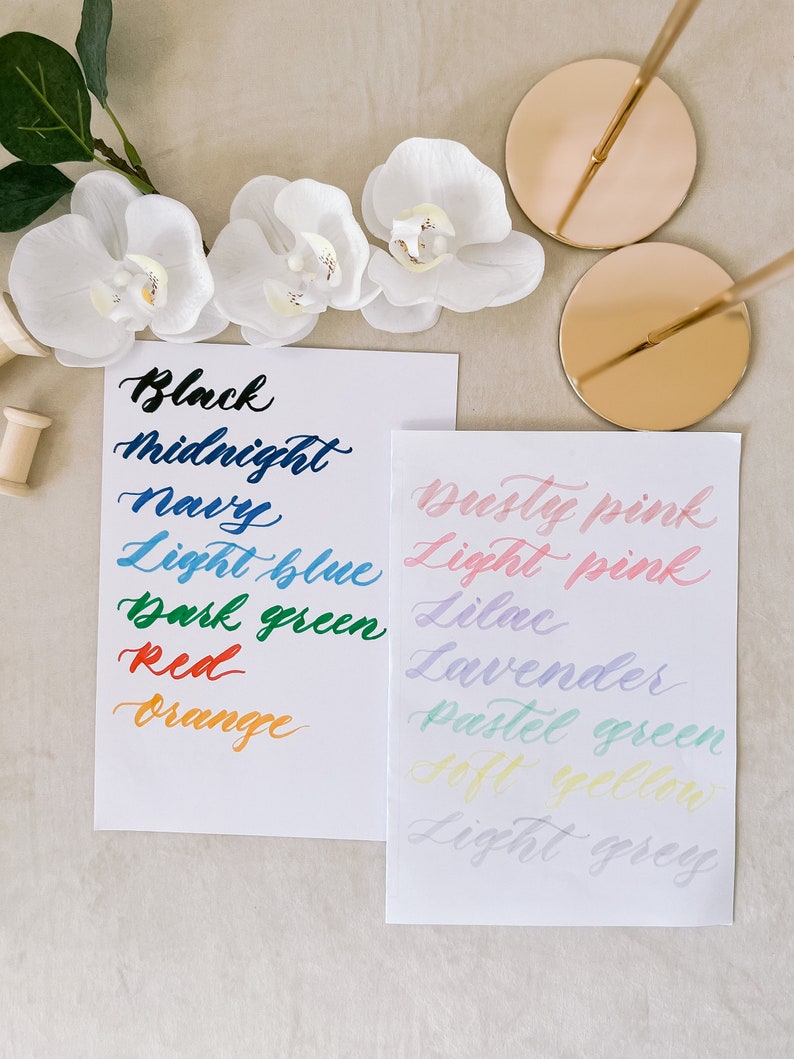 Black
Midnight
Navy
Light blue
Dark green
Red
Orange
Dusty pink
Light pink
Lilac
Lavender
Pastel green
Soft yellow
Light grey